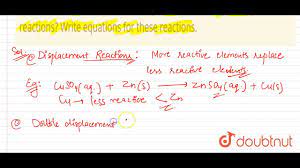 reactions? Write equations for these reactions.
Sol. @ Displacement Reactions: More reactive elements replace
less reactive elements.
Eg: CuSO4(aq.) + Zn(s) → ZnSO4(aq.) + Cu(s)
Cu → less reactive < Zn
@ Double displacement :
doubtnut